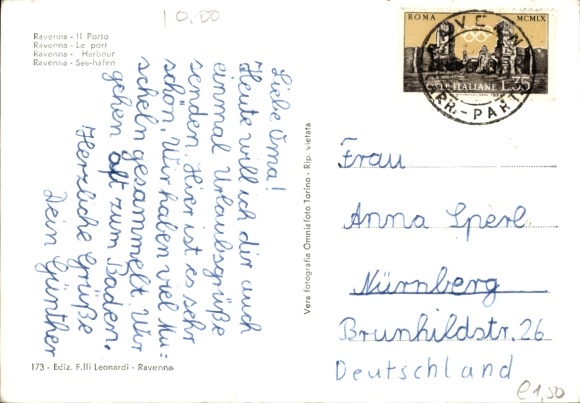 10.00
Ravenna - Il Porto
Ravenna - Le port
Ravenna - Harbour
Ravenna - See-hafen
ROMA MCMLIX
POSTE ITALIANE L.35
ARR.-PART
Liebe Oma!
Heute will ich dir auch
einmal Urlaubsgrüße
senden. Hier ist es sehr
schön. Wir haben viel Mu=
scheln gesammelt. Wir
gehen oft zum Baden.
Herzliche Grüße
Dein Günther
Vera fotografia Omniafoto Torino - Rip. vietata
Frau
Anna Sperl
Nürnberg
Brunhildstr. 26
Deutschland
173 - Ediz. F.lli Leonardi - Ravenna
€ 1,50